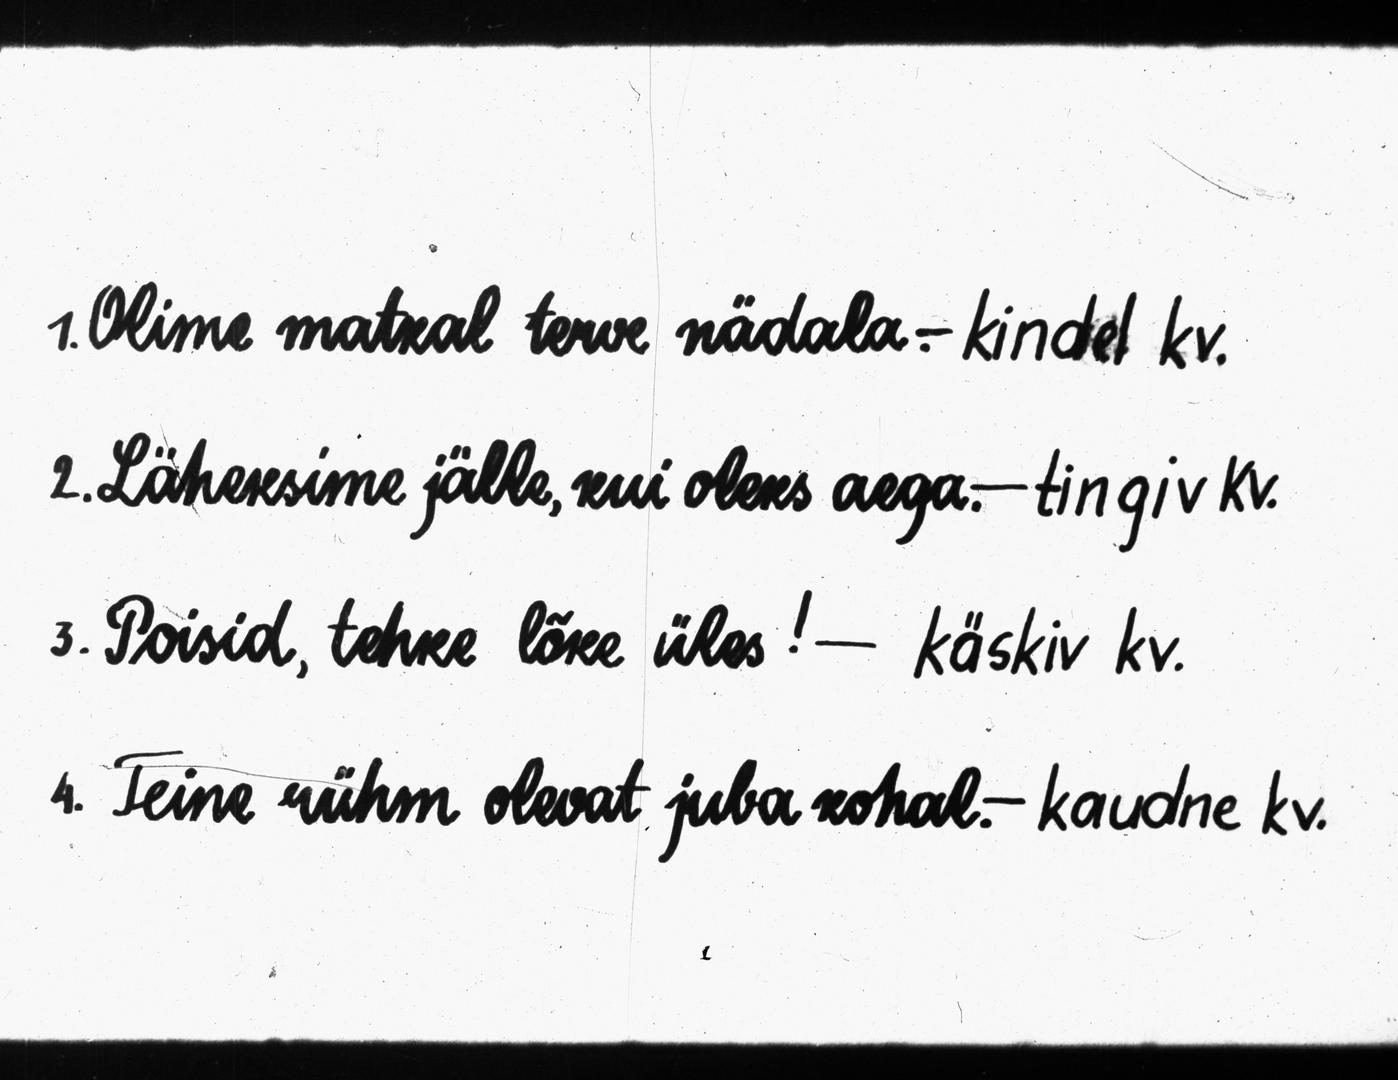 1. Olime matkal terve nädala. – kindel kv.
2. Läheksime jälle, kui oleks aega. – tingiv kv.
3. Poisid, tehke lõke üles! – käskiv kv.
4. Teine rühm olevat juba kohal. – kaudne kv.